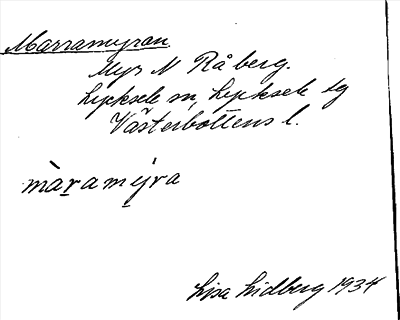 Marramyran
Myr N Råberg.
Lycksele sn, Lycksele lg
Västerbottens l.
màṟamy̱ra
Lisa Lidberg 1934